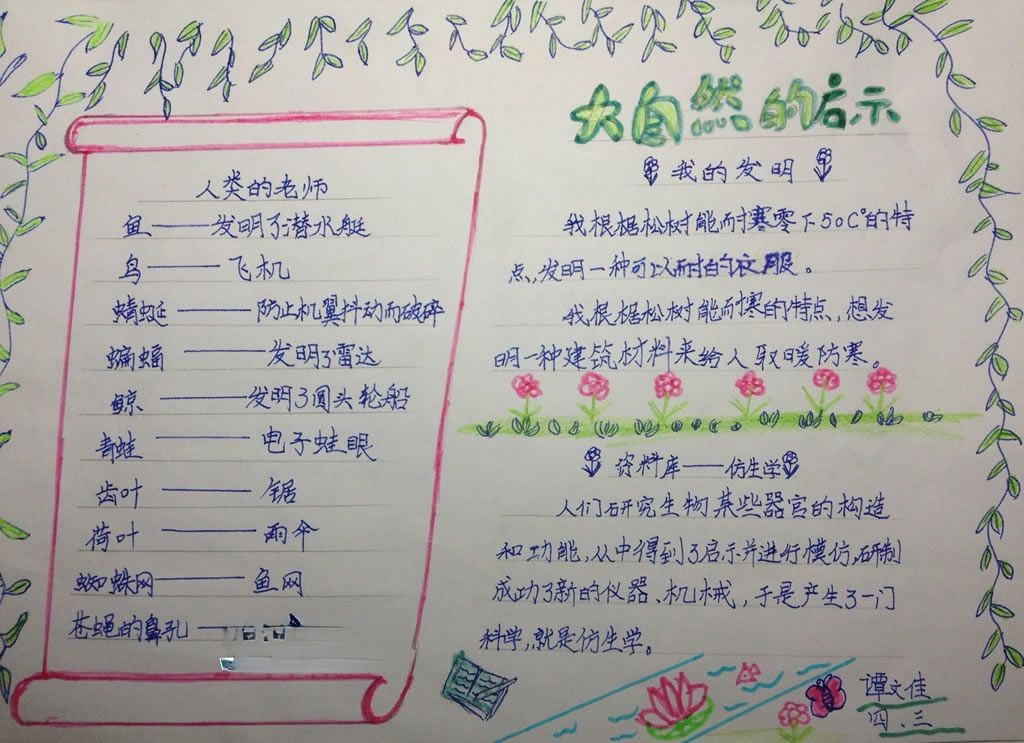 人类的老师
鱼——发明了潜水艇
鸟——飞机
蜻蜓——防止机翼抖动而破碎
蝙蝠——发明了雷达
鲸——发明了圆头轮船
青蛙——电子蛙眼
齿叶——锯
荷叶——雨伞
蜘蛛网——鱼网
苍蝇的鼻孔——
大自然的启示
我的发明
我根据松树能耐寒零下50C°的特
点,发明一种可以耐的衣服。
我根据松树能耐寒的特点,想发
明一种建筑材料来给人取暖防寒。
资料库——仿生学
人们研究生物某些器官的构造
和功能,从中得到了启示并进行模仿,研制
成功了新的仪器、机械,于是产生了一门
科学,就是仿生学。
谭文佳
四、三